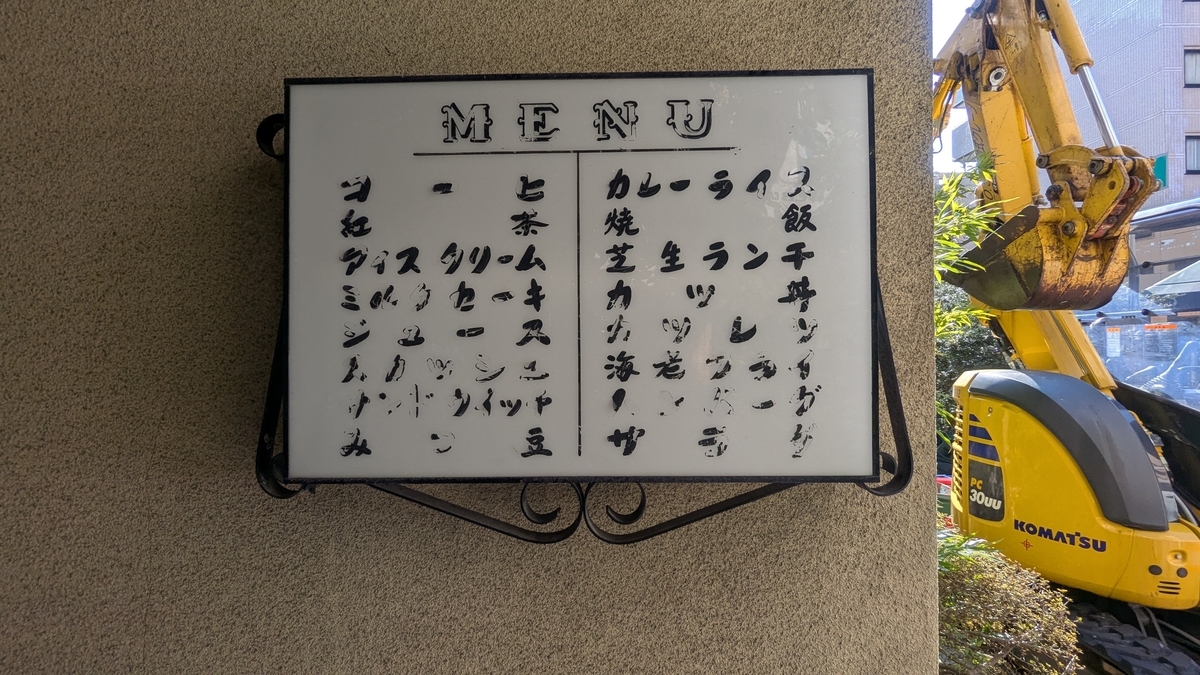 MENU
コーヒ
紅茶
アイスクリーム
ミルクセーキ
ジュース
スカッシュ
サンドウイッチ
みつ豆
カレーライス
焼飯
芝生ランチ
カツ丼
カツレツ
海老フライ
ハンバーグ
サラダ
PC
30UU
KOMATSU